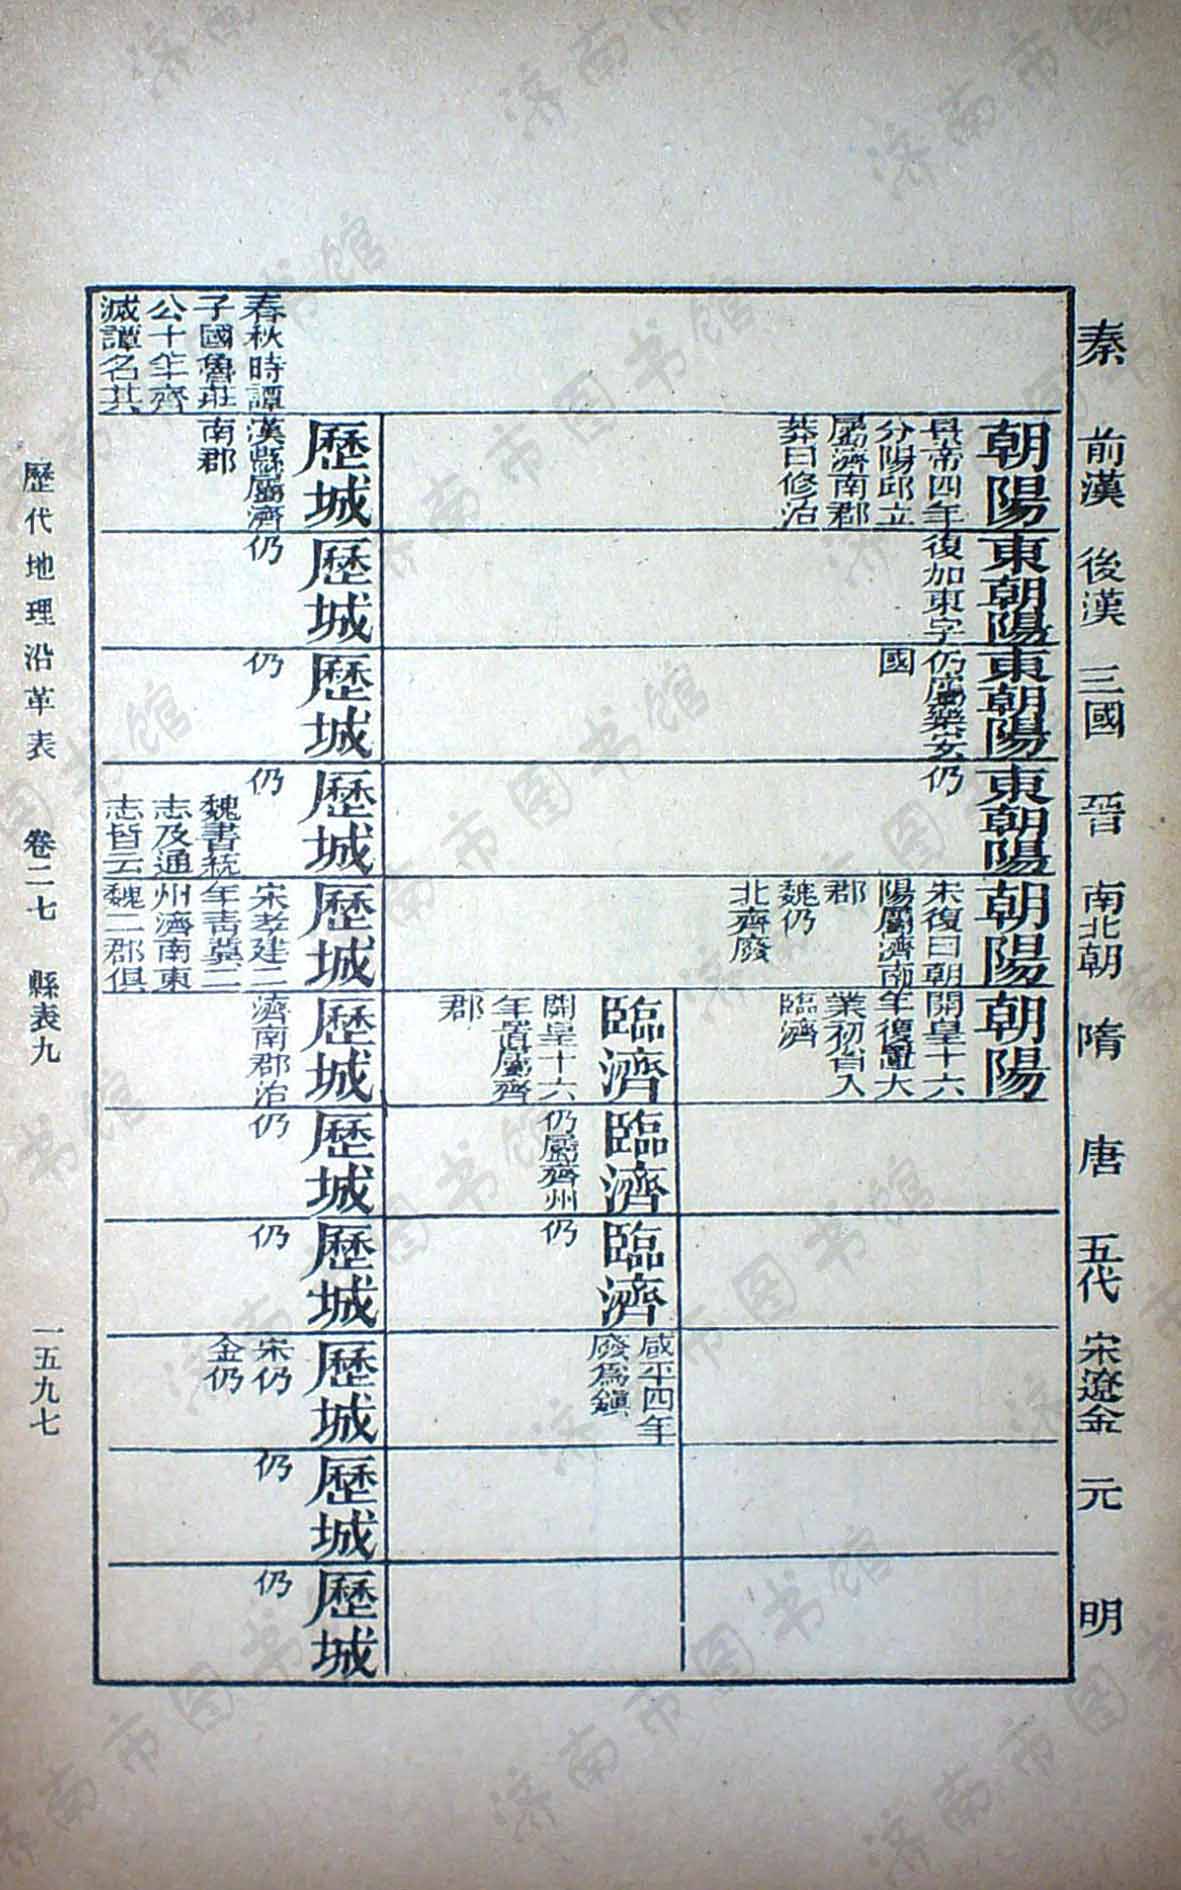 秦
前漢
後漢
三國
晉
南北朝
隋
唐
五代
宋遼金
元
明
朝陽
景帝四年
分陽邱立
屬濟南郡
莽曰修治
東朝陽
復加東字
東朝陽
仍屬樂安
國
東朝陽
仍
朝陽
宋復曰朝
陽屬濟南
郡
魏仍
北齊廢
朝陽
開皇十六
年復置大
業初省入
臨濟
臨濟
開皇十六
年置屬齊
郡
臨濟
仍屬齊州
臨濟
仍
咸平四年
廢為鎮
春秋時譚
子國魯莊
公十年齊
滅譚名其
歷城
漢縣屬濟
南郡
歷城
仍
歷城
仍
歷城
仍
魏書統
志及通
志皆云
歷城
宋孝建二
年青冀二
州濟南東
魏二郡俱
歷城
濟南郡治
歷城
仍
歷城
仍
歷城
宋仍
金仍
歷城
仍
歷城
仍
歷代地理沿革表 卷二七 縣表九 一五九七
济南市图书馆